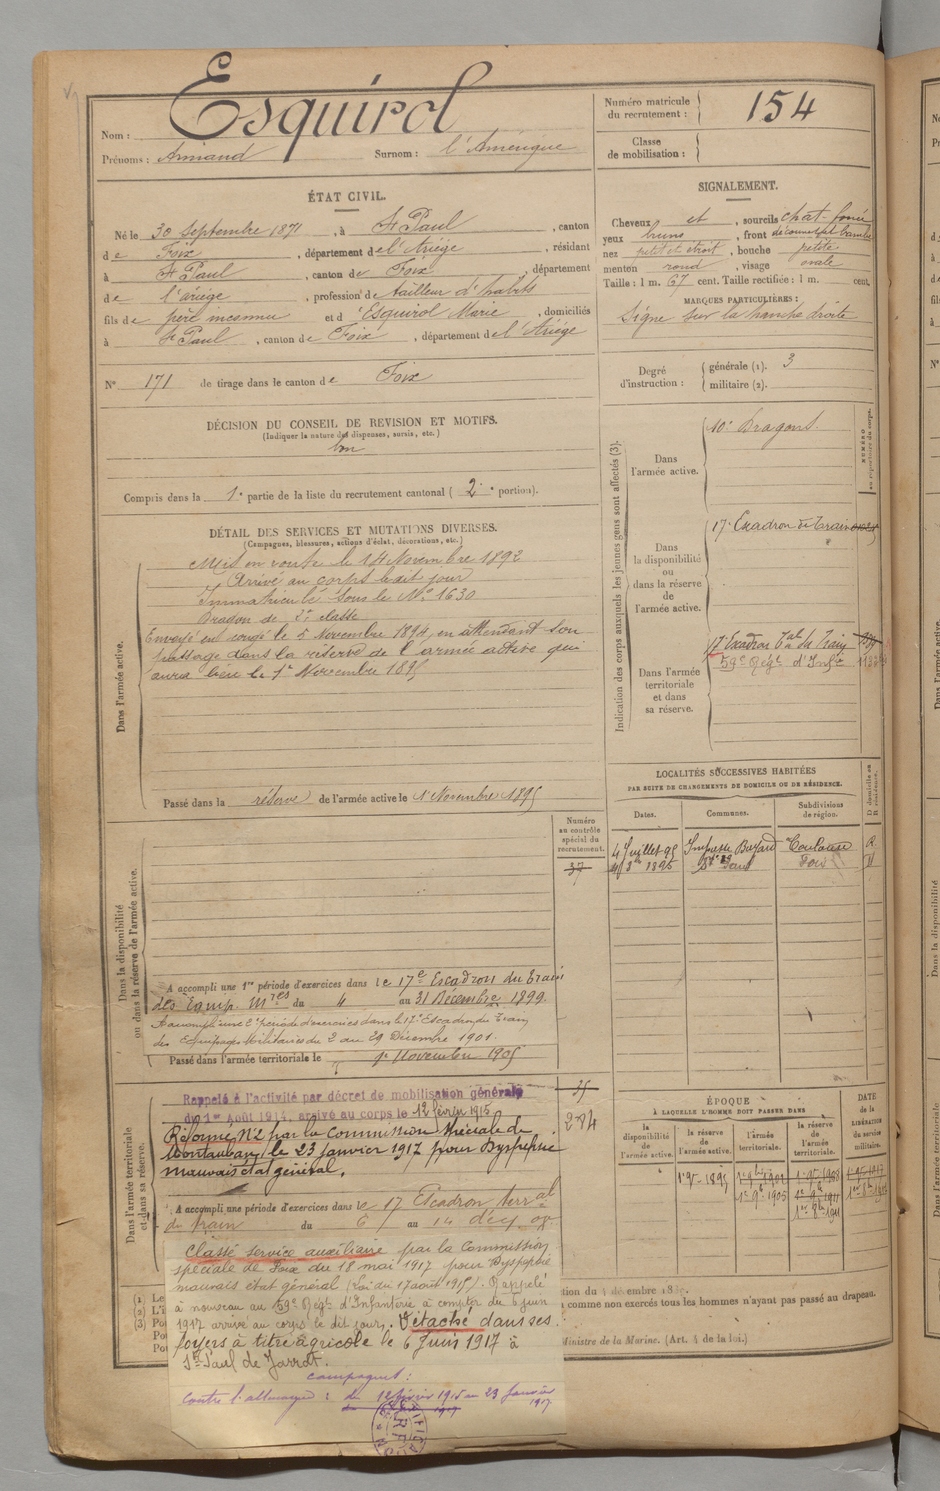 Esquirol
Nom :
Prénoms : Armand Surnom : l'Amérique
Numéro matricule du recrutement : 154
Classe de mobilisation :
ÉTAT CIVIL.
Né le 30 Septembre 1871, à St Paul, canton
de Foix, département de l'Ariège, résidant
à St Paul, canton de Foix, département
de l'ariège, profession de tailleur d'habits
fils de père inconnu et d'Esquirol Marie, domiciliés
à St Paul, canton de Foix, département de l'Ariège
N° 171 de tirage dans le canton de Foix
SIGNALEMENT.
Cheveux et, sourcils chat-foncé
yeux bruns, front découvert
nez petit et étroit, bouche petite
menton rond, visage ovale
Taille : 1 m. 67 cent. Taille rectifiée : 1 m. cent.
MARQUES PARTICULIÈRES :
Signe sur la hanche droite
Degré d'instruction : générale (1). 3
militaire (2).
DÉCISION DU CONSEIL DE REVISION ET MOTIFS.
(Indiquer la nature des dispenses, sursis, etc.)
bon
Compris dans la 1e partie de la liste du recrutement cantonal (2e portion).
DÉTAIL DES SERVICES ET MUTATIONS DIVERSES.
(Campagnes, blessures, actions d'éclat, décorations, etc.)
Dans l'armée active.
Mis en route le 14 Novembre 1892
Arrivé au corps ledit jour
Immatriculé sous le N° 1630
Dragon de 2e classe
Envoyé en congé le 5 Novembre 1894, en attendant son
passage dans la réserve de l'armée active qui
aura lieu le 1er Novembre 1895
Passé dans la réserve de l'armée active le 1 Novembre 1895
Indication des corps auxquels les jeunes gens sont affectés (3).
NUMÉRO au répertoire du corps.
Dans l'armée active.
10e Dragons.
Dans la disponibilité ou dans la réserve de l'armée active.
17e Escadron du Train
Dans l'armée territoriale et dans sa réserve.
17e Escadron Tal du Train
59e Régt d'Infie
LOCALITÉS SUCCESSIVES HABITÉES
PAR SUITE DE CHANGEMENTS DE DOMICILE OU DE RÉSIDENCE.
Dates. Communes. Subdivisions de région. D domicile ou R résidence.
4 Juillet 95 Impasse Bayard Toulouse R
1895 St Paul Foix D
Numéro au contrôle spécial du recrutement.
37
Dans la disponibilité ou dans la réserve de l'armée active.
A accompli une 1re période d'exercices dans le 17e Escadron du Train
des Equip. Mres du 4 au 31 Décembre 1899.
A accompli une 2e période d'exercices dans le 17e Escadron du Train
des Equipages Militaires du 2 au 29 Décembre 1901.
Passé dans l'armée territoriale le 1er Novembre 1905
Dans l'armée territoriale et dans sa réserve.
Rappelé à l'activité par décret de mobilisation générale
du 1er Août 1914, arrivé au corps le 12 février 1915
Réformé N°2 par la Commission spéciale de
Montauban, le 23 janvier 1917 pour Dyspepsie
mauvais état général.
A accompli une période d'exercices dans le 17 Escadron terral
du train du 6 au 14 décb
ÉPOQUE
À LAQUELLE L'HOMME DOIT PASSER DANS
la disponibilité de l'armée active. la réserve de l'armée active. l'armée territoriale. la réserve de l'armée territoriale. DATE de la LIBÉRATION du service militaire.
Classé service auxiliaire par la Commission
spéciale de Foix du 18 mai 1917 pour Dyspepsie
mauvais état général (Loi du 17 août 1915). Rappelé
à nouveau au 59e Régt d'Infanterie à compter du 6 juin
1917 arrivé au corps le dit jour. Détaché dans ses
foyers à titre agricole le 6 Juin 1917 à
St Paul de Jarrat.
campagnes :
contre l'allemagne : du 12 février 1915 au 23 Janvier
1917
comme non exercés tous les hommes n'ayant pas passé au drapeau.
Ministre de la Marine. (Art. 4 de la loi.)